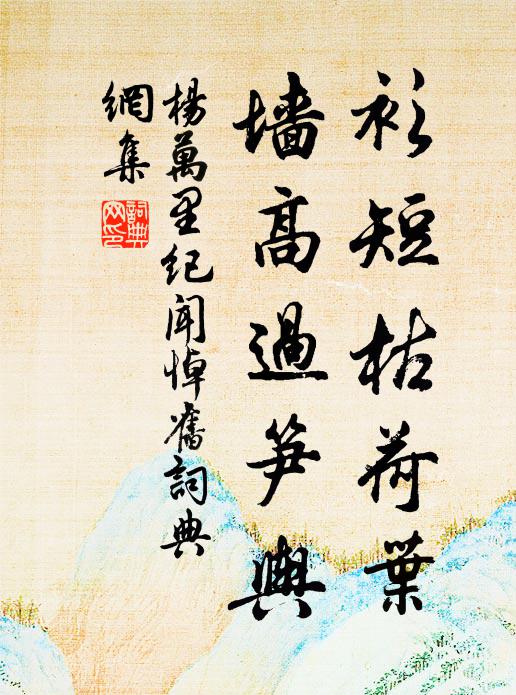 衫短枯荷葉
墻高過笋輿
楊萬里紀聞悼舊詞典
網集
詞典
网印